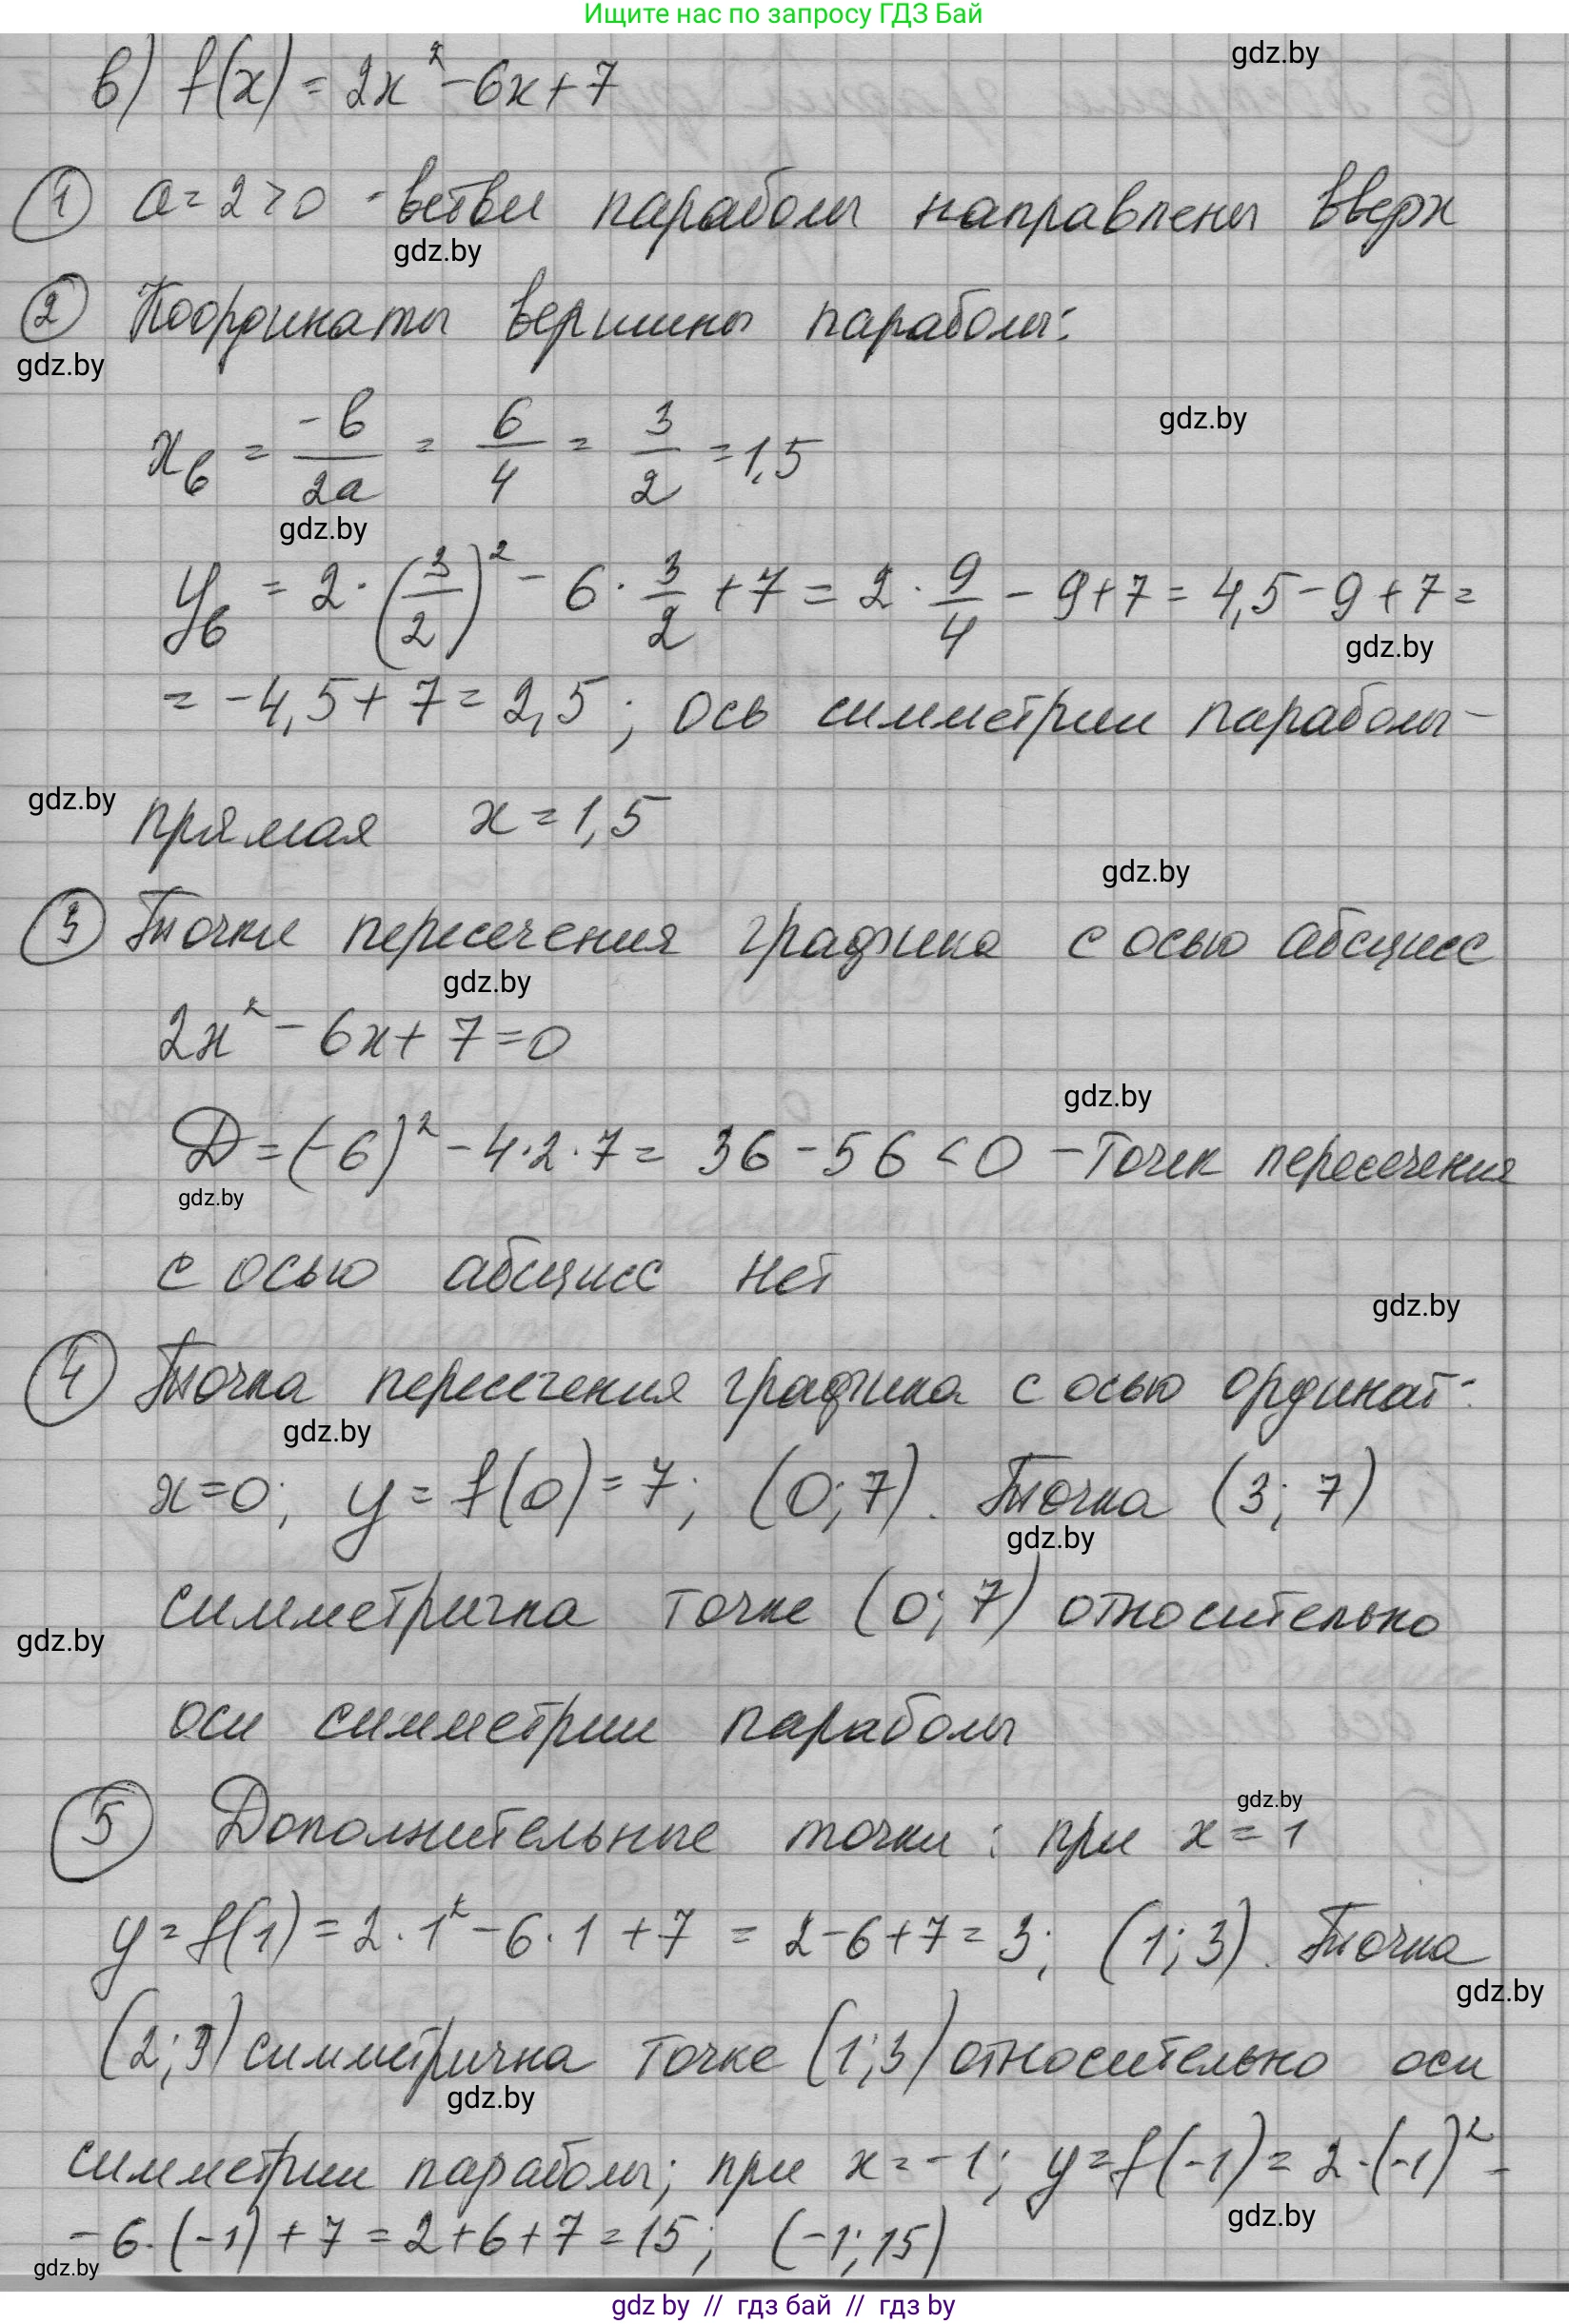 Ищите нас по запросу ГДЗ Бай
gdz.by
в) f(x) = 2x² - 6x + 7
① a = 2 > 0 - ветви параболы направлены вверх
gdz.by
② Координаты вершины параболы:
gdz.by
gdz.by
xв = -b/2a = 6/4 = 3/2 = 1,5
gdz.by
yв = 2 · (3/2)² - 6 · 3/2 + 7 = 2 · 9/4 - 9 + 7 = 4,5 - 9 + 7 =
gdz.by
= -4,5 + 7 = 2,5 ; ось симметрии параболы -
gdz.by
прямая x = 1,5
gdz.by
③ Точки пересечения графика с осью абсцисс
gdz.by
2x² - 6x + 7 = 0
gdz.by
D = (-6)² - 4·2·7 = 36 - 56 < 0 - точек пересечения
gdz.by
с осью абсцисс нет
gdz.by
④ Точка пересечения графика с осью ординат:
gdz.by
x = 0; y = f(0) = 7; (0; 7). Точка (3; 7)
gdz.by
симметрична точке (0; 7) относительно
gdz.by
оси симметрии параболы
gdz.by
⑤ Дополнительные точки: при x = 1
y = f(1) = 2·1² - 6·1 + 7 = 2 - 6 + 7 = 3; (1; 3). Точка
gdz.by
(2; 3) симметрична точке (1; 3) относительно оси
gdz.by
симметрии параболы; при x = -1; y = f(-1) = 2·(-1)² -
gdz.by
- 6·(-1) + 7 = 2 + 6 + 7 = 15; (-1; 15)
gdz.by
gdz by // гдз бай // гдз by